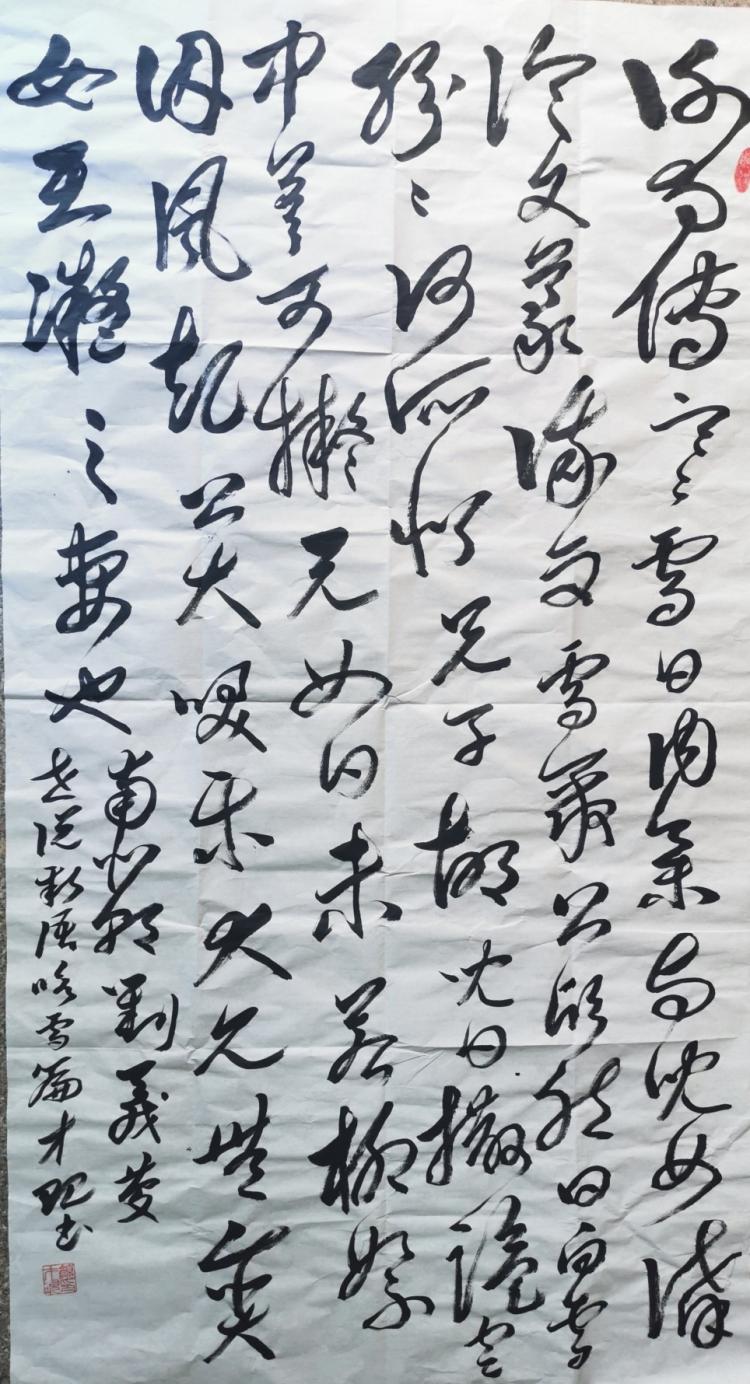 謝傅寒雪日内集與兒女講
論文義俄而雪驟公欣然曰白雪
紛紛何所似兄子胡兒曰撒鹽空
中差可擬兄女曰未若柳絮
因風起公大笑樂大兄無奕
女王凝之妻也
南北朝劉義慶
世說新語咏雪篇才書